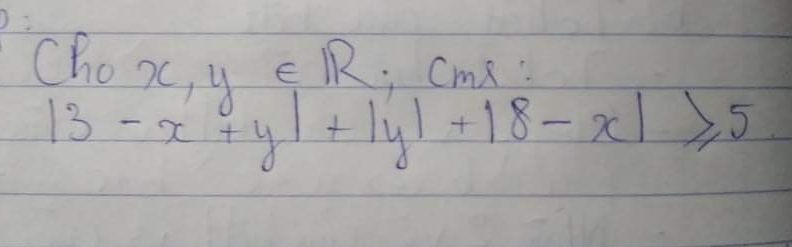 Cho x, y ∈ ℝ; cmr:
|3 - x + y| + |y| + |8 - x| ⩾ 5